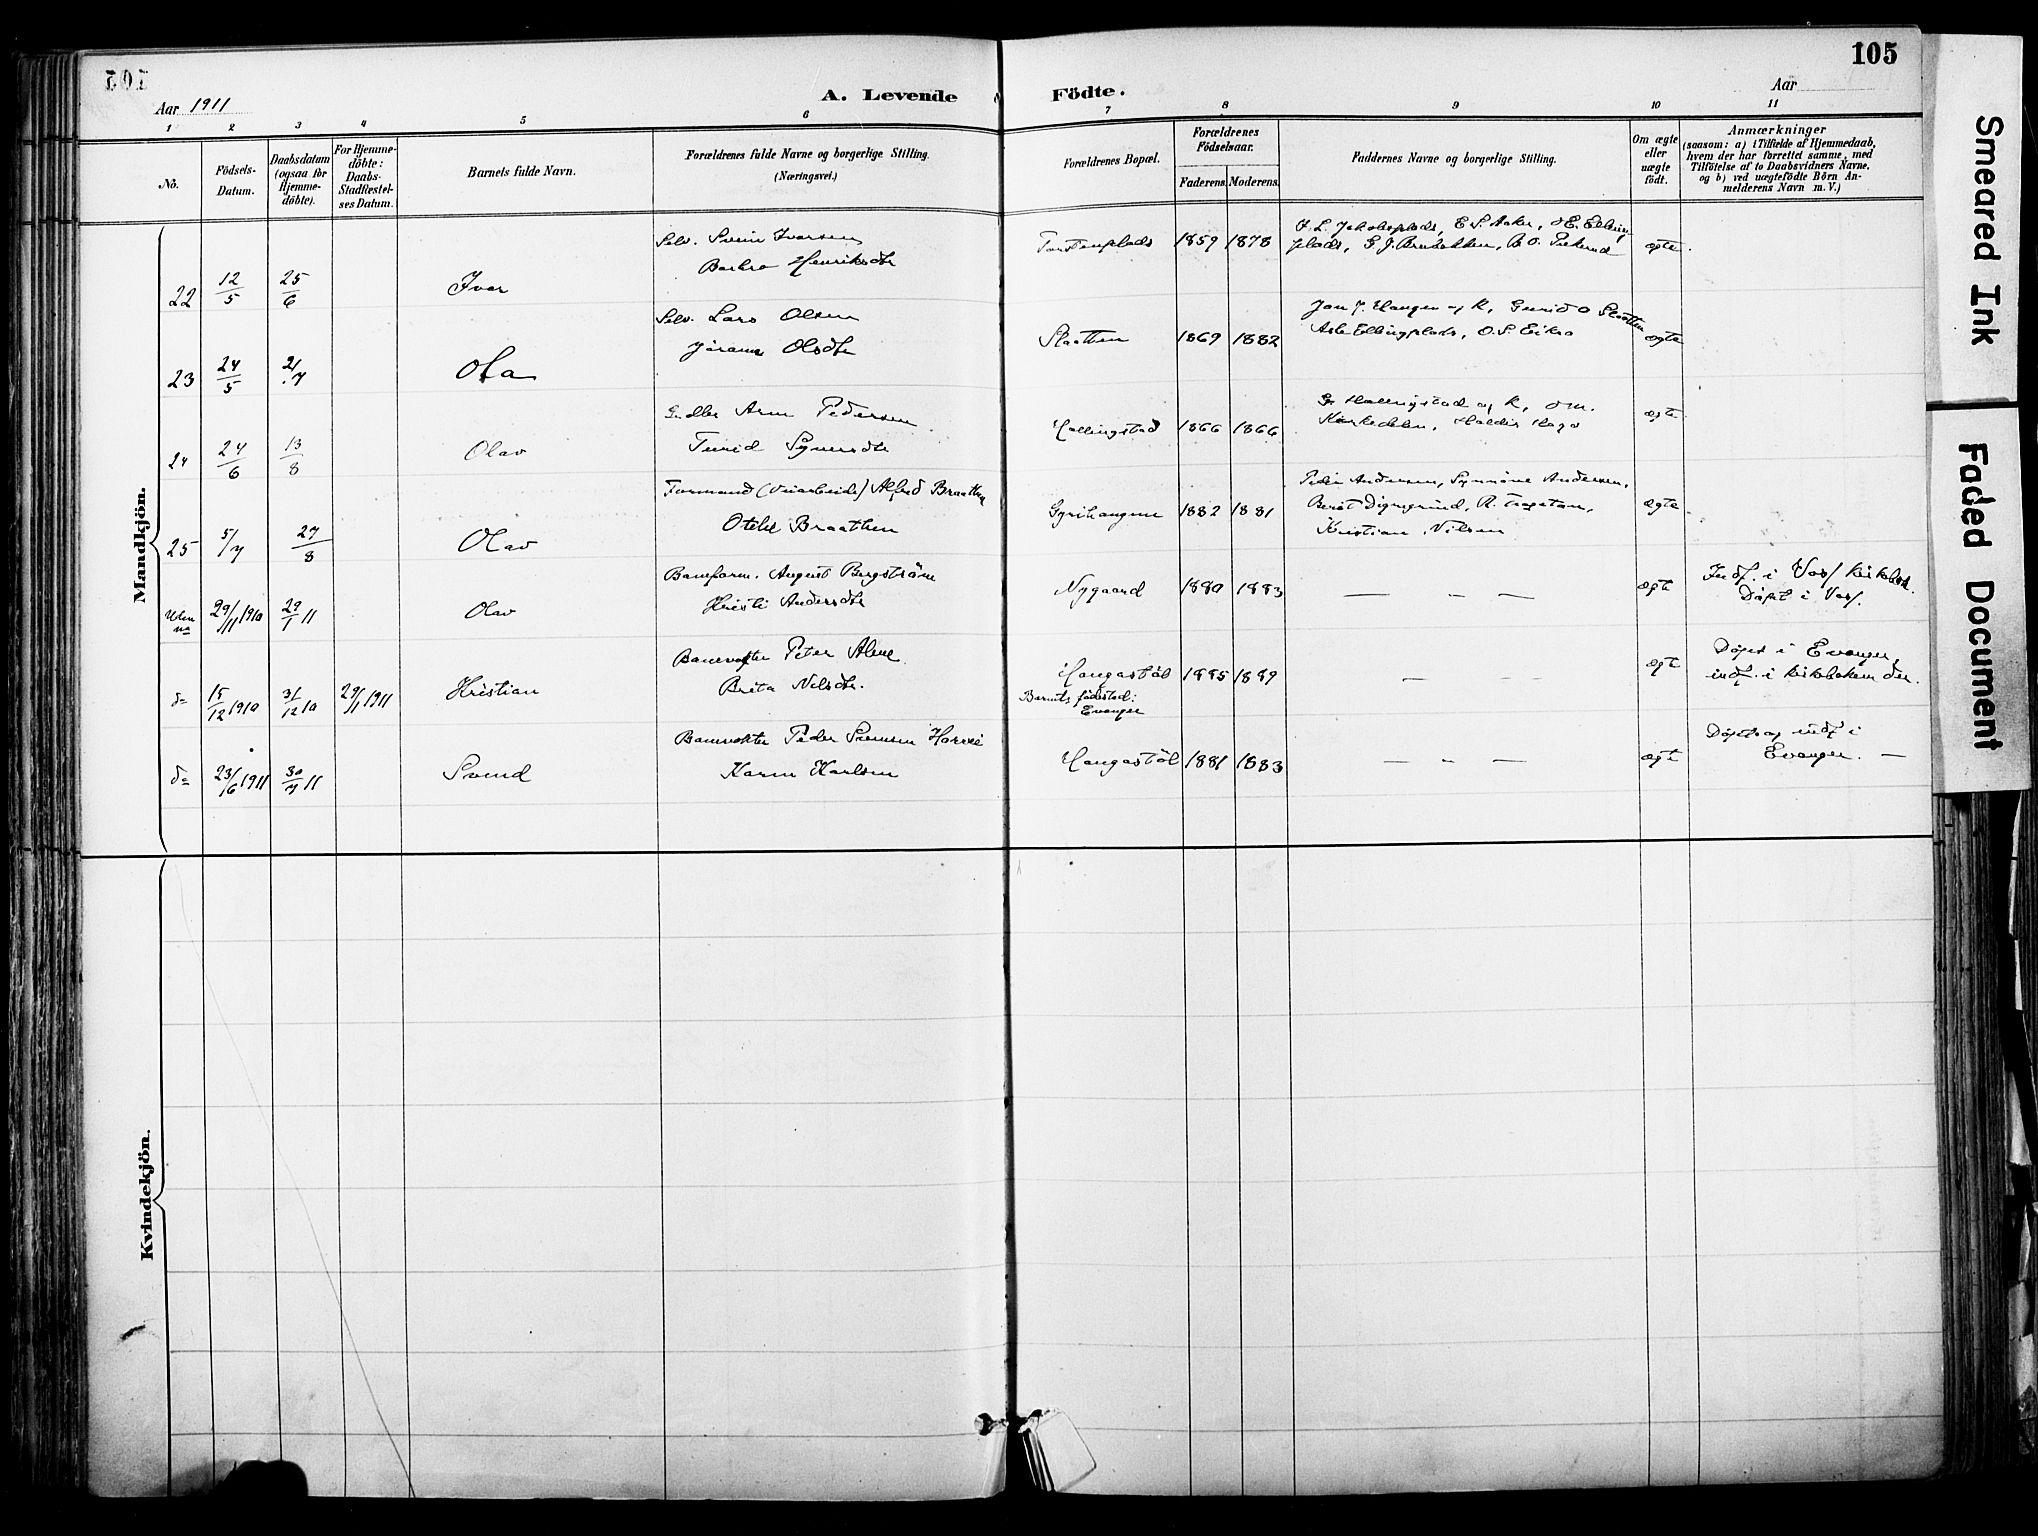 105
Aar 1911
A. Levende Födte.
Aar
1 2 3 4 5 6 7 8 9 10 11
No.
Födsels-Datum.
Daabsdatum (ogsaa for Hjemme-döbte).
For Hjemme-döbte: Daabs-Stadfæstel-ses Datum.
Barnets fulde Navn.
Forældrenes fulde Navne og borgerlige Stilling. (Næringsvei.)
Forældrenes Bopæl.
Forældrenes Födselsaar.
Faderens. Moderens.
Faddernes Navne og borgerlige Stilling.
Om ægte eller uægte födt.
Anmærkninger
(saasom: a) i Tilfælde af Hjemmedaab,
hvem der har forrettet samme, med
Tilföielse af to Daabsvidners Navne,
og b) ved uægtefödte Börn An-
melderens Navn m. V.)
Mandkjön.
Selv. Svein Ivarsen
Barbro Henriksdtr
22 12/5 25/6 Ivar
Torsteinplads 1859 1878
plads, E. S. Aaker,
ægte.
Selv. Lars Olsen
Jörann Olsdtr
23 24/5 2/7 Ola
Slaatten 1869 1882
Jon J. Haugen og K, Gunild O Slaatten
Asle Ellingplads, O. S. Eikro
ægte
Arne Pedersen
Turid
24 24/6 13/8 Olav
Hallingstad 1866 1866
Hallingstad og K,
ægte
Formand (Veiarbeide) Alfred Braathen
Otelie Braathen
25 5/7 27/8 Olav
Gjeilhaugen 1882 1881
Peder Andersen, Synnöve Andersen,
Kristian Nilsen
ægte
Baneform. August Bergström
Kristi Andersdtr
Uten no 29/11 1910 29/1 11 Olav
Nygaard 1880 1883
— " —
ægte
Indf. i Voss kirkebok.
Döpt i Voss.
Banevokter Peter Alme
Brita Nilsdtr.
do 15/12 1910 31/12 10 29/1 1911 Kristian
Haugastöl 1885 1889
Barnets födested:
Evanger
— " —
ægte
Döpt i Evanger,
indf. i kirkeboken der.
Banevokter Peder Svensen Horvei
Karen Karlsen
do 23/6 1911 30/7 11 Svend
Haugastöl 1881 1883
— " —
ægte
Döpt og indf i
Evanger. —
Kvindekjön.
Smeared Ink
Faded Document